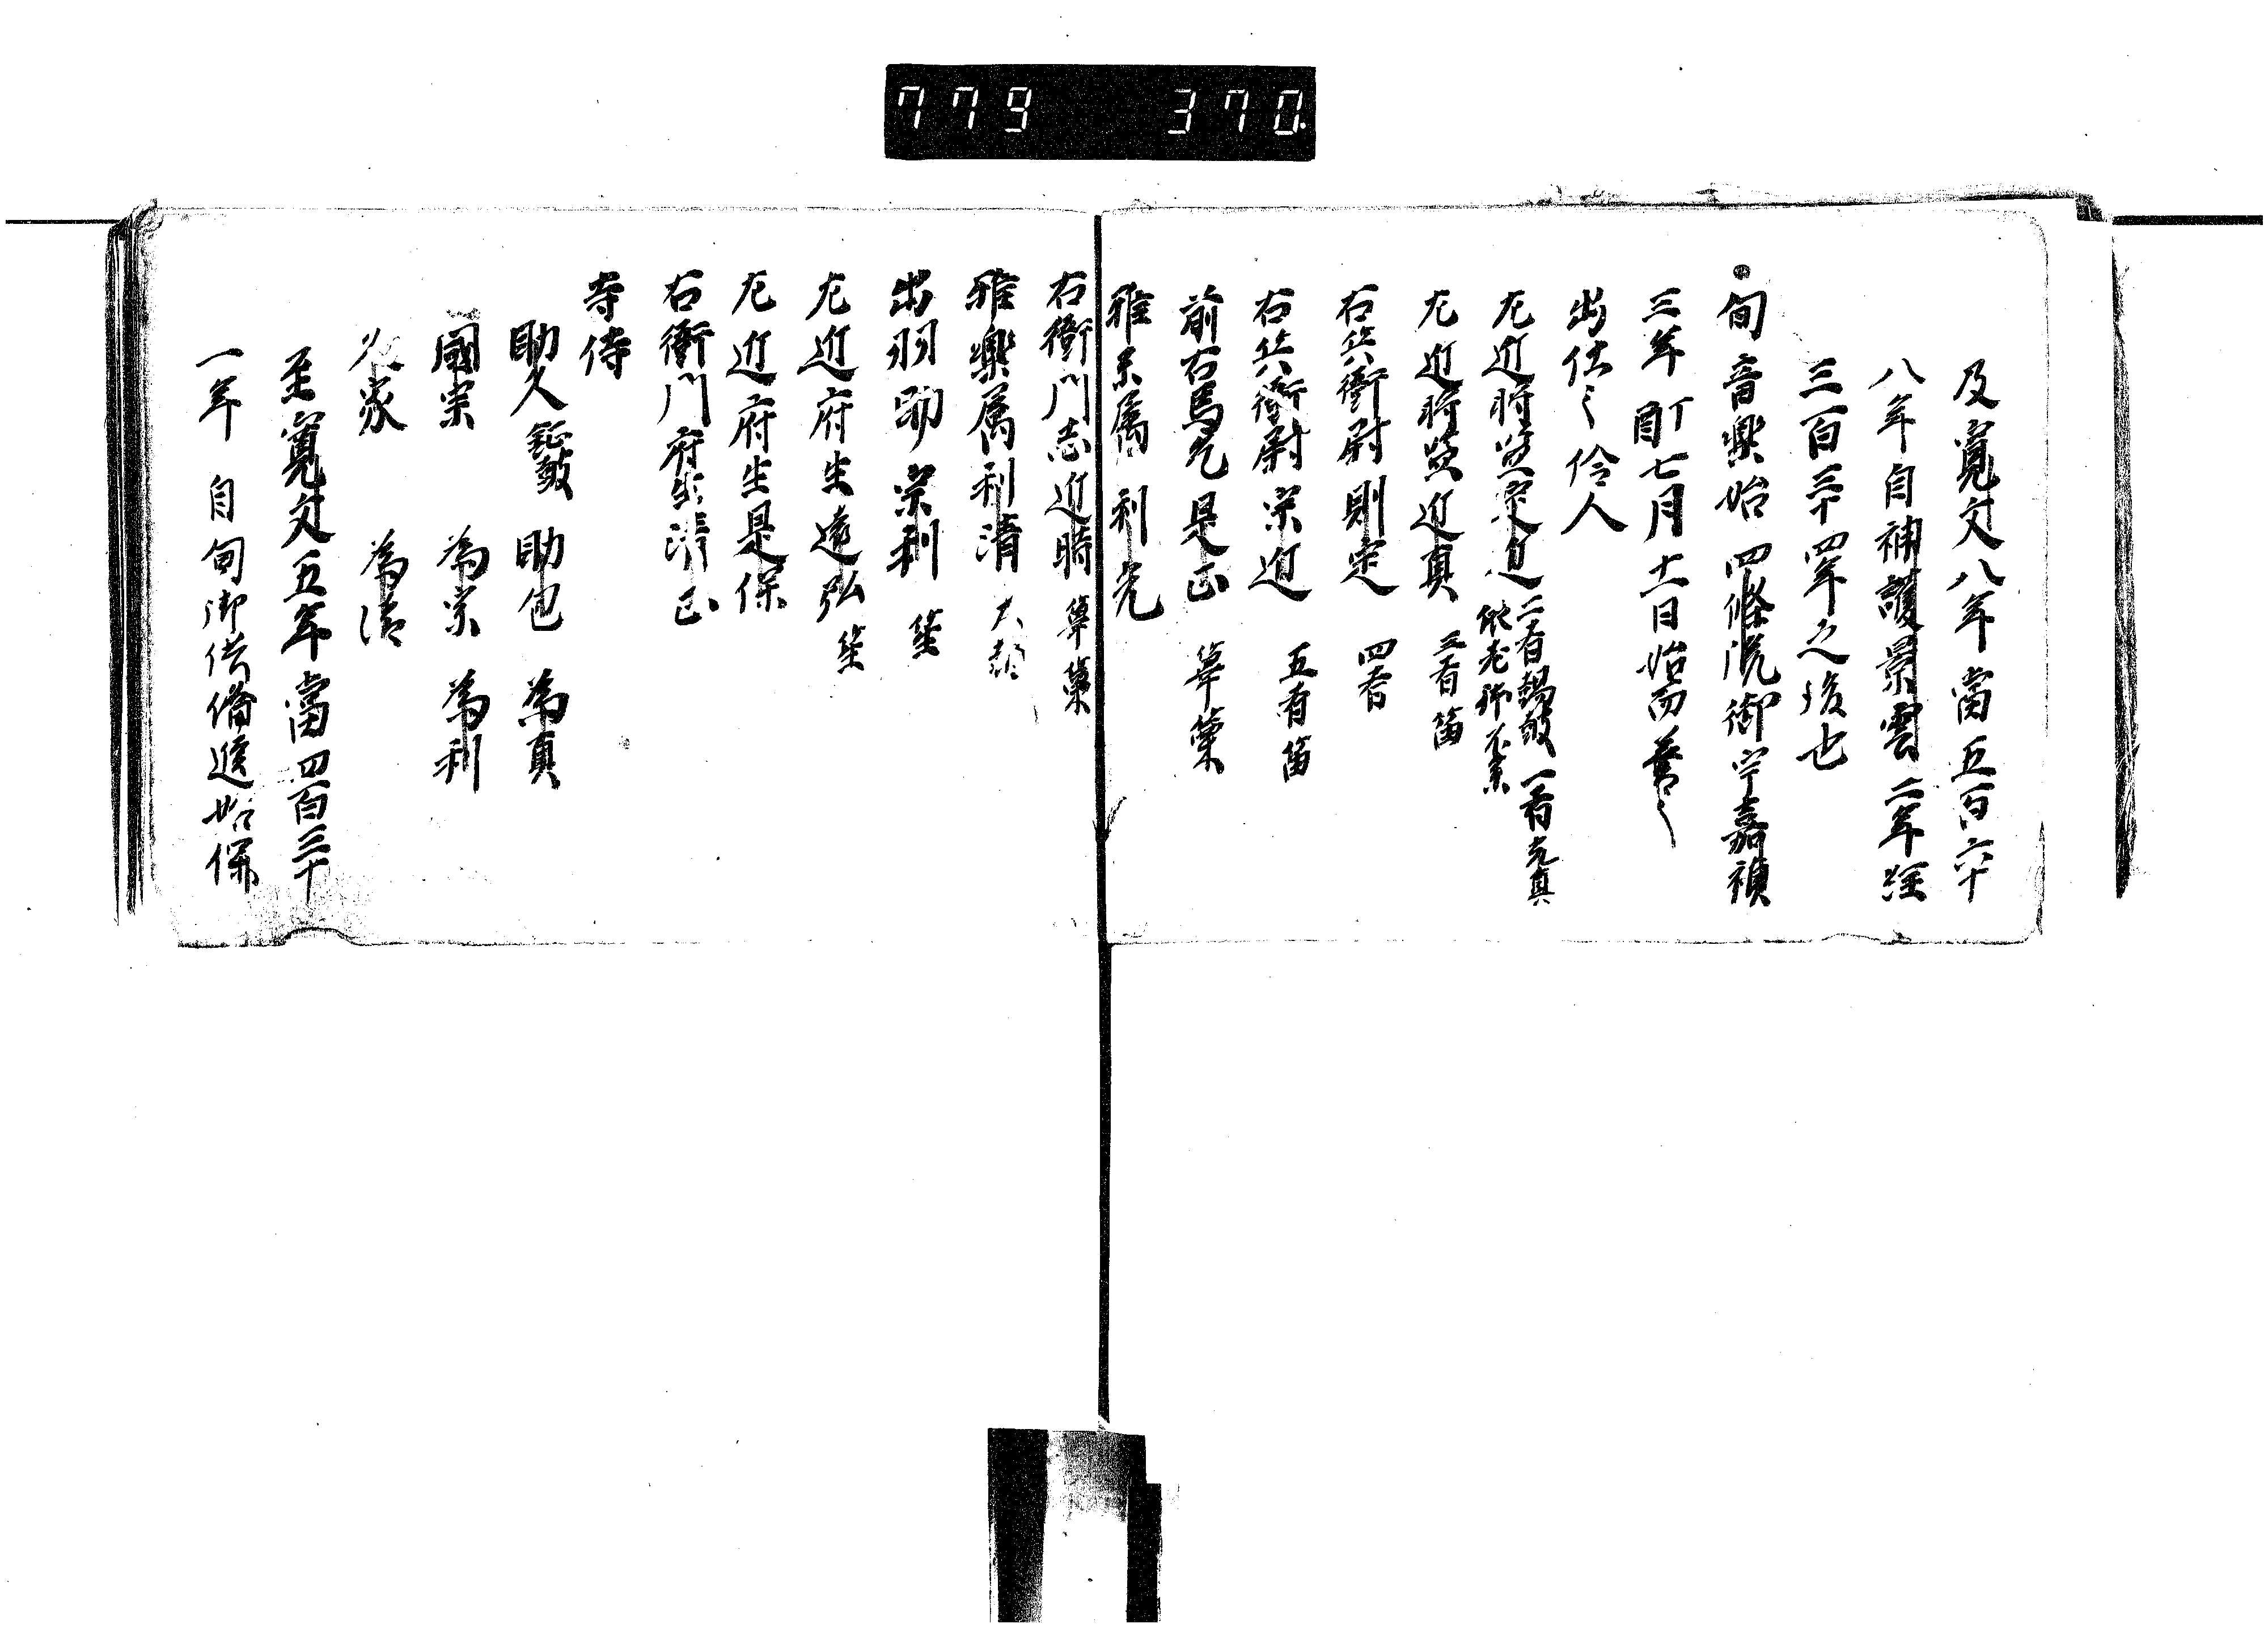 779 370.
及寛文八年當五百六十
八年自神護景雲二年経
三百三十四年之後也
旬音樂始四條院御宇嘉禎
三年丁酉七月十一日始而
出仕之伶人
左近将監定近 二者鞨鼓 一者光真
依老
左近将監近真 三者笛
右兵衛尉則定 四者
右兵衛尉宗近 五者笛
前右馬允是正 篳篥
雅樂属利光
右衛門志近時 篳篥
雅樂属利清 大鼓
出羽助宗利 笙
左近府生遠弘 笙
左近府生是保
右衛門府生清正
寺侍
助久 鉦鼓 助包 為真
國宗 為宗 為利
家 為清
至寛文五年當四百三十
一年自旬御供備進始保